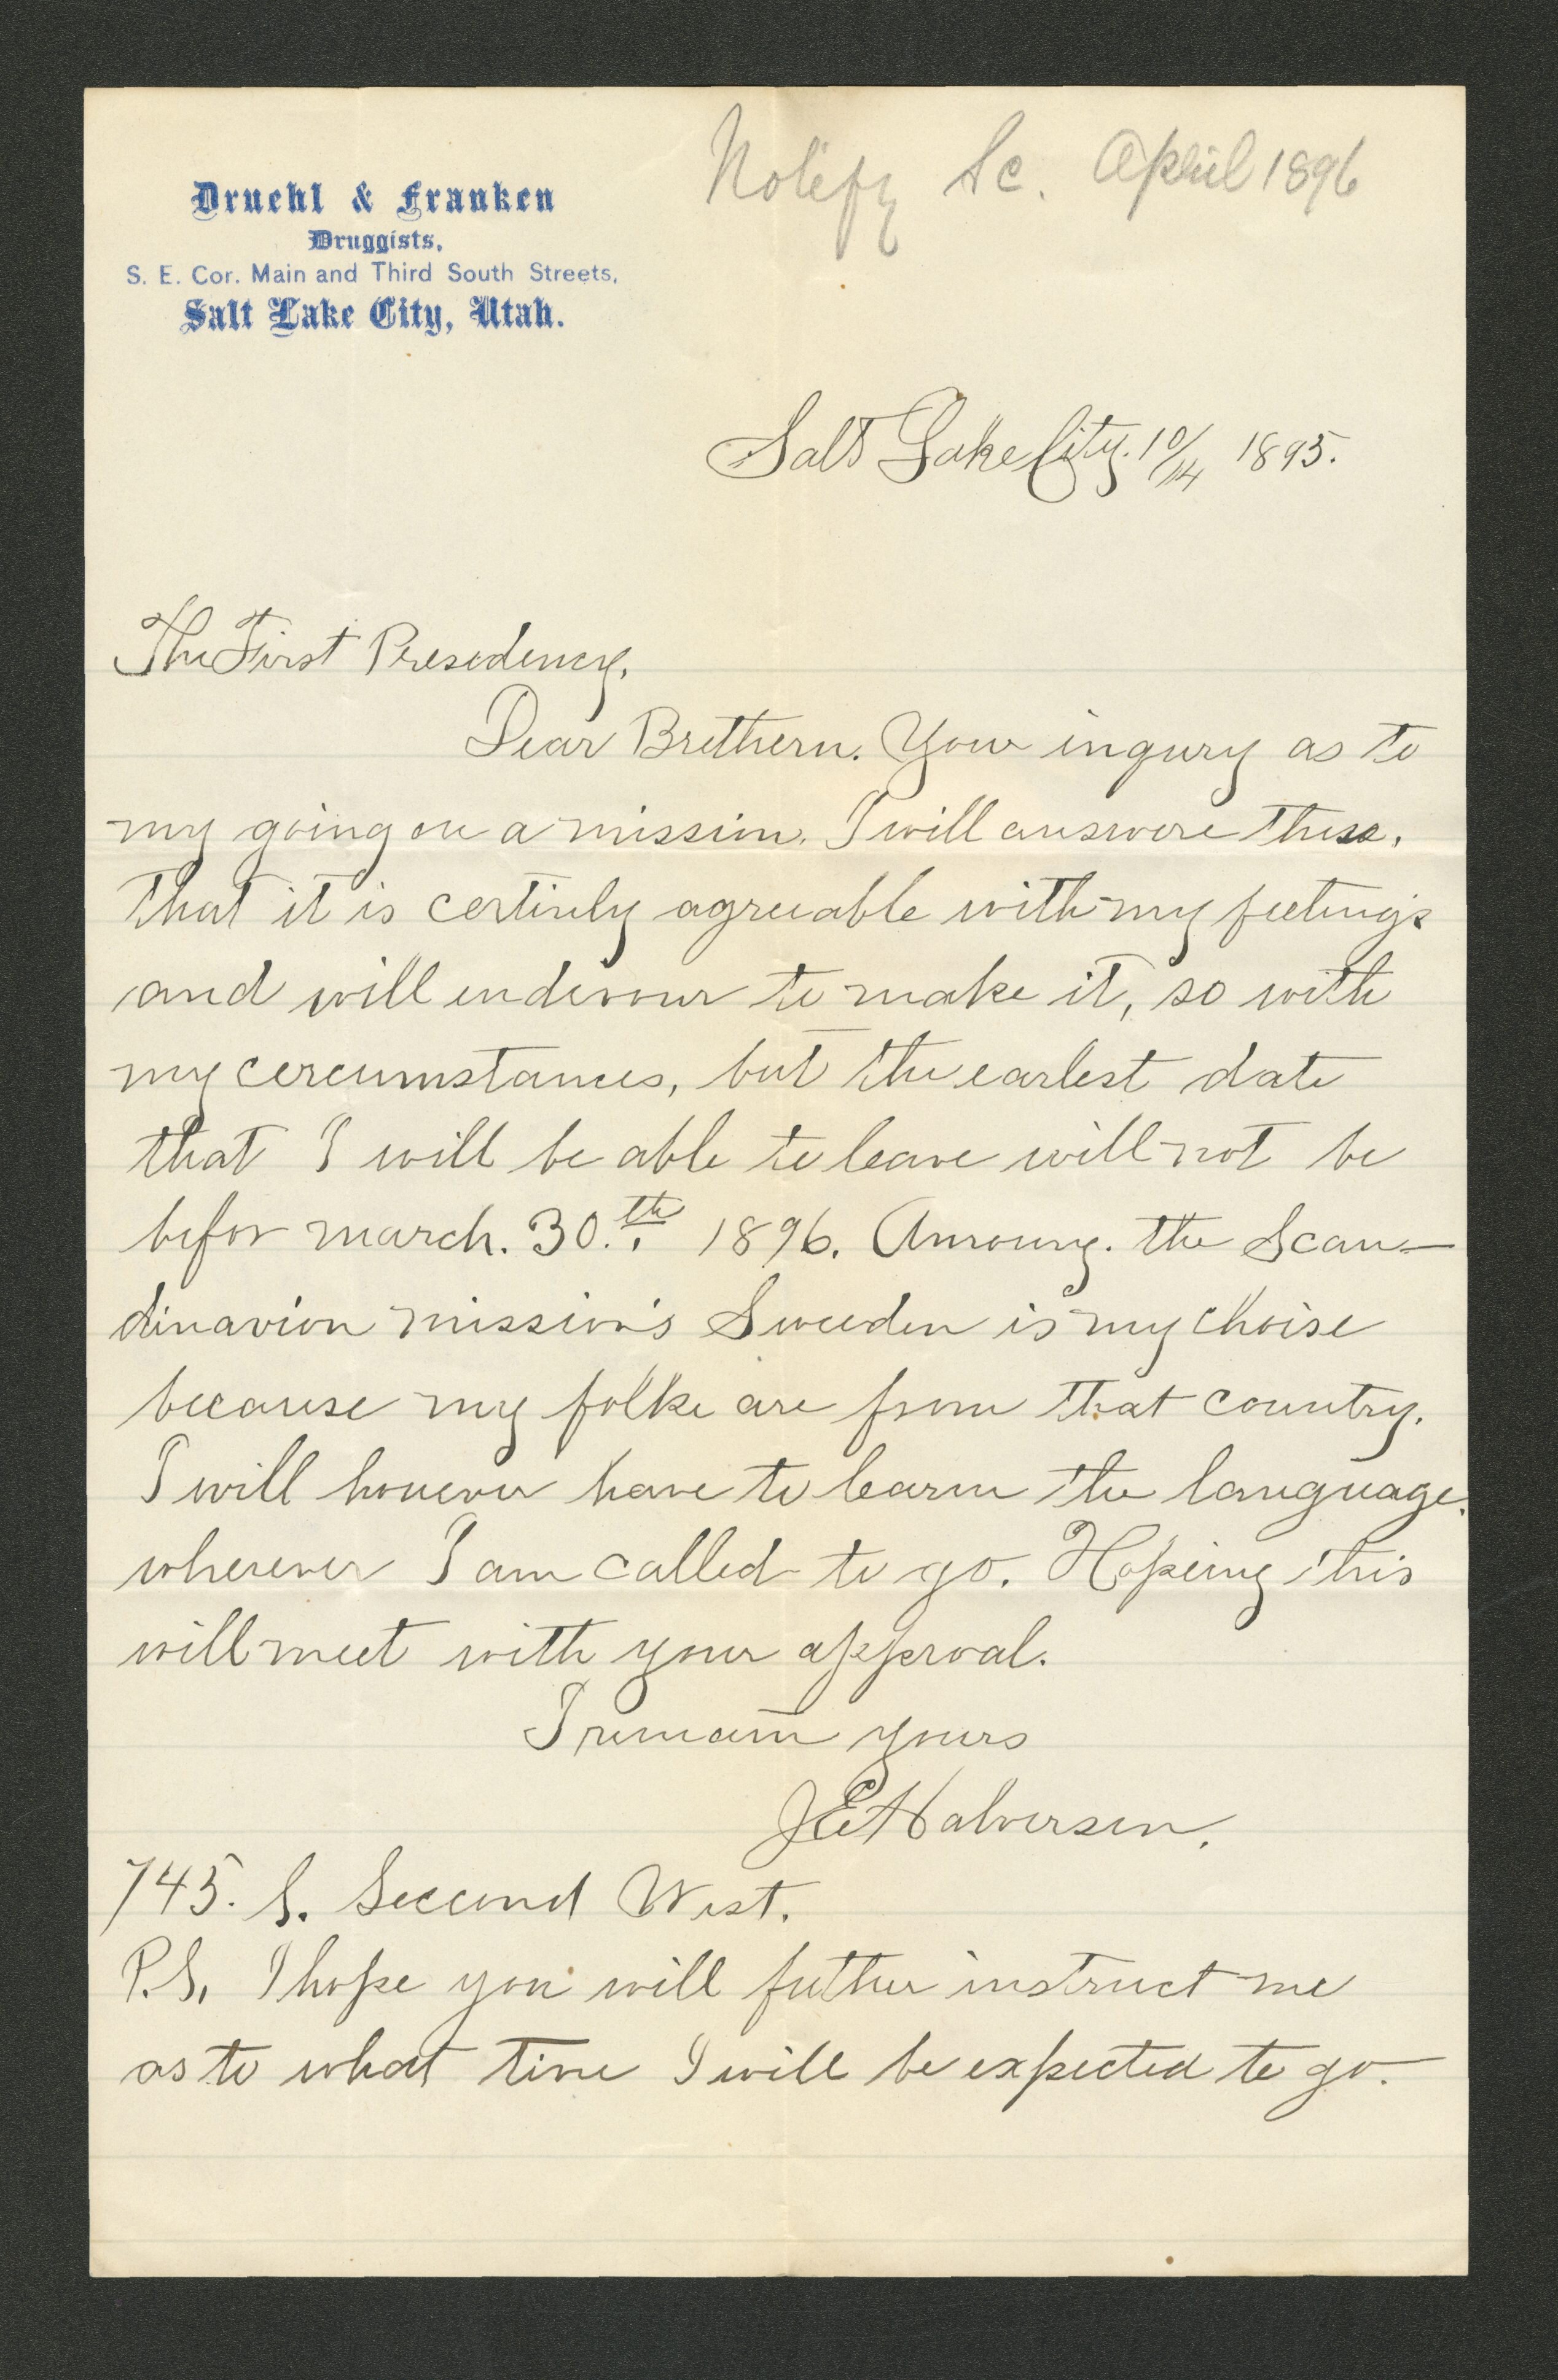 Druehl & Franken
Druggists,
S. E. Cor. Main and Third South Streets,
Salt Lake City, Utah.
Notify Sc. April 1896
Salt Lake City. 10/14 1895.
The First Presedency.
Dear Brethern. Your inqury as to
my going on a mission. I will answere thuss.
that it is certinly agreeable with my feelings
and will endevour to make it, so with
my cercumstances, but the earlest date
that I will be able to leave will not be
befor march. 30.th 1896. Amoung. the Scan-
dinavion mission's Sweeden is my choise
because my folks are from that country.
I will however have to learn the language.
wherever I am called to go. Hopeing this
will meet with your apperoval.
I remain yours
J E Halversen.
745. S. Second West.
P.S. I hope you will futher instruct me
as to what time I will be expected to go.